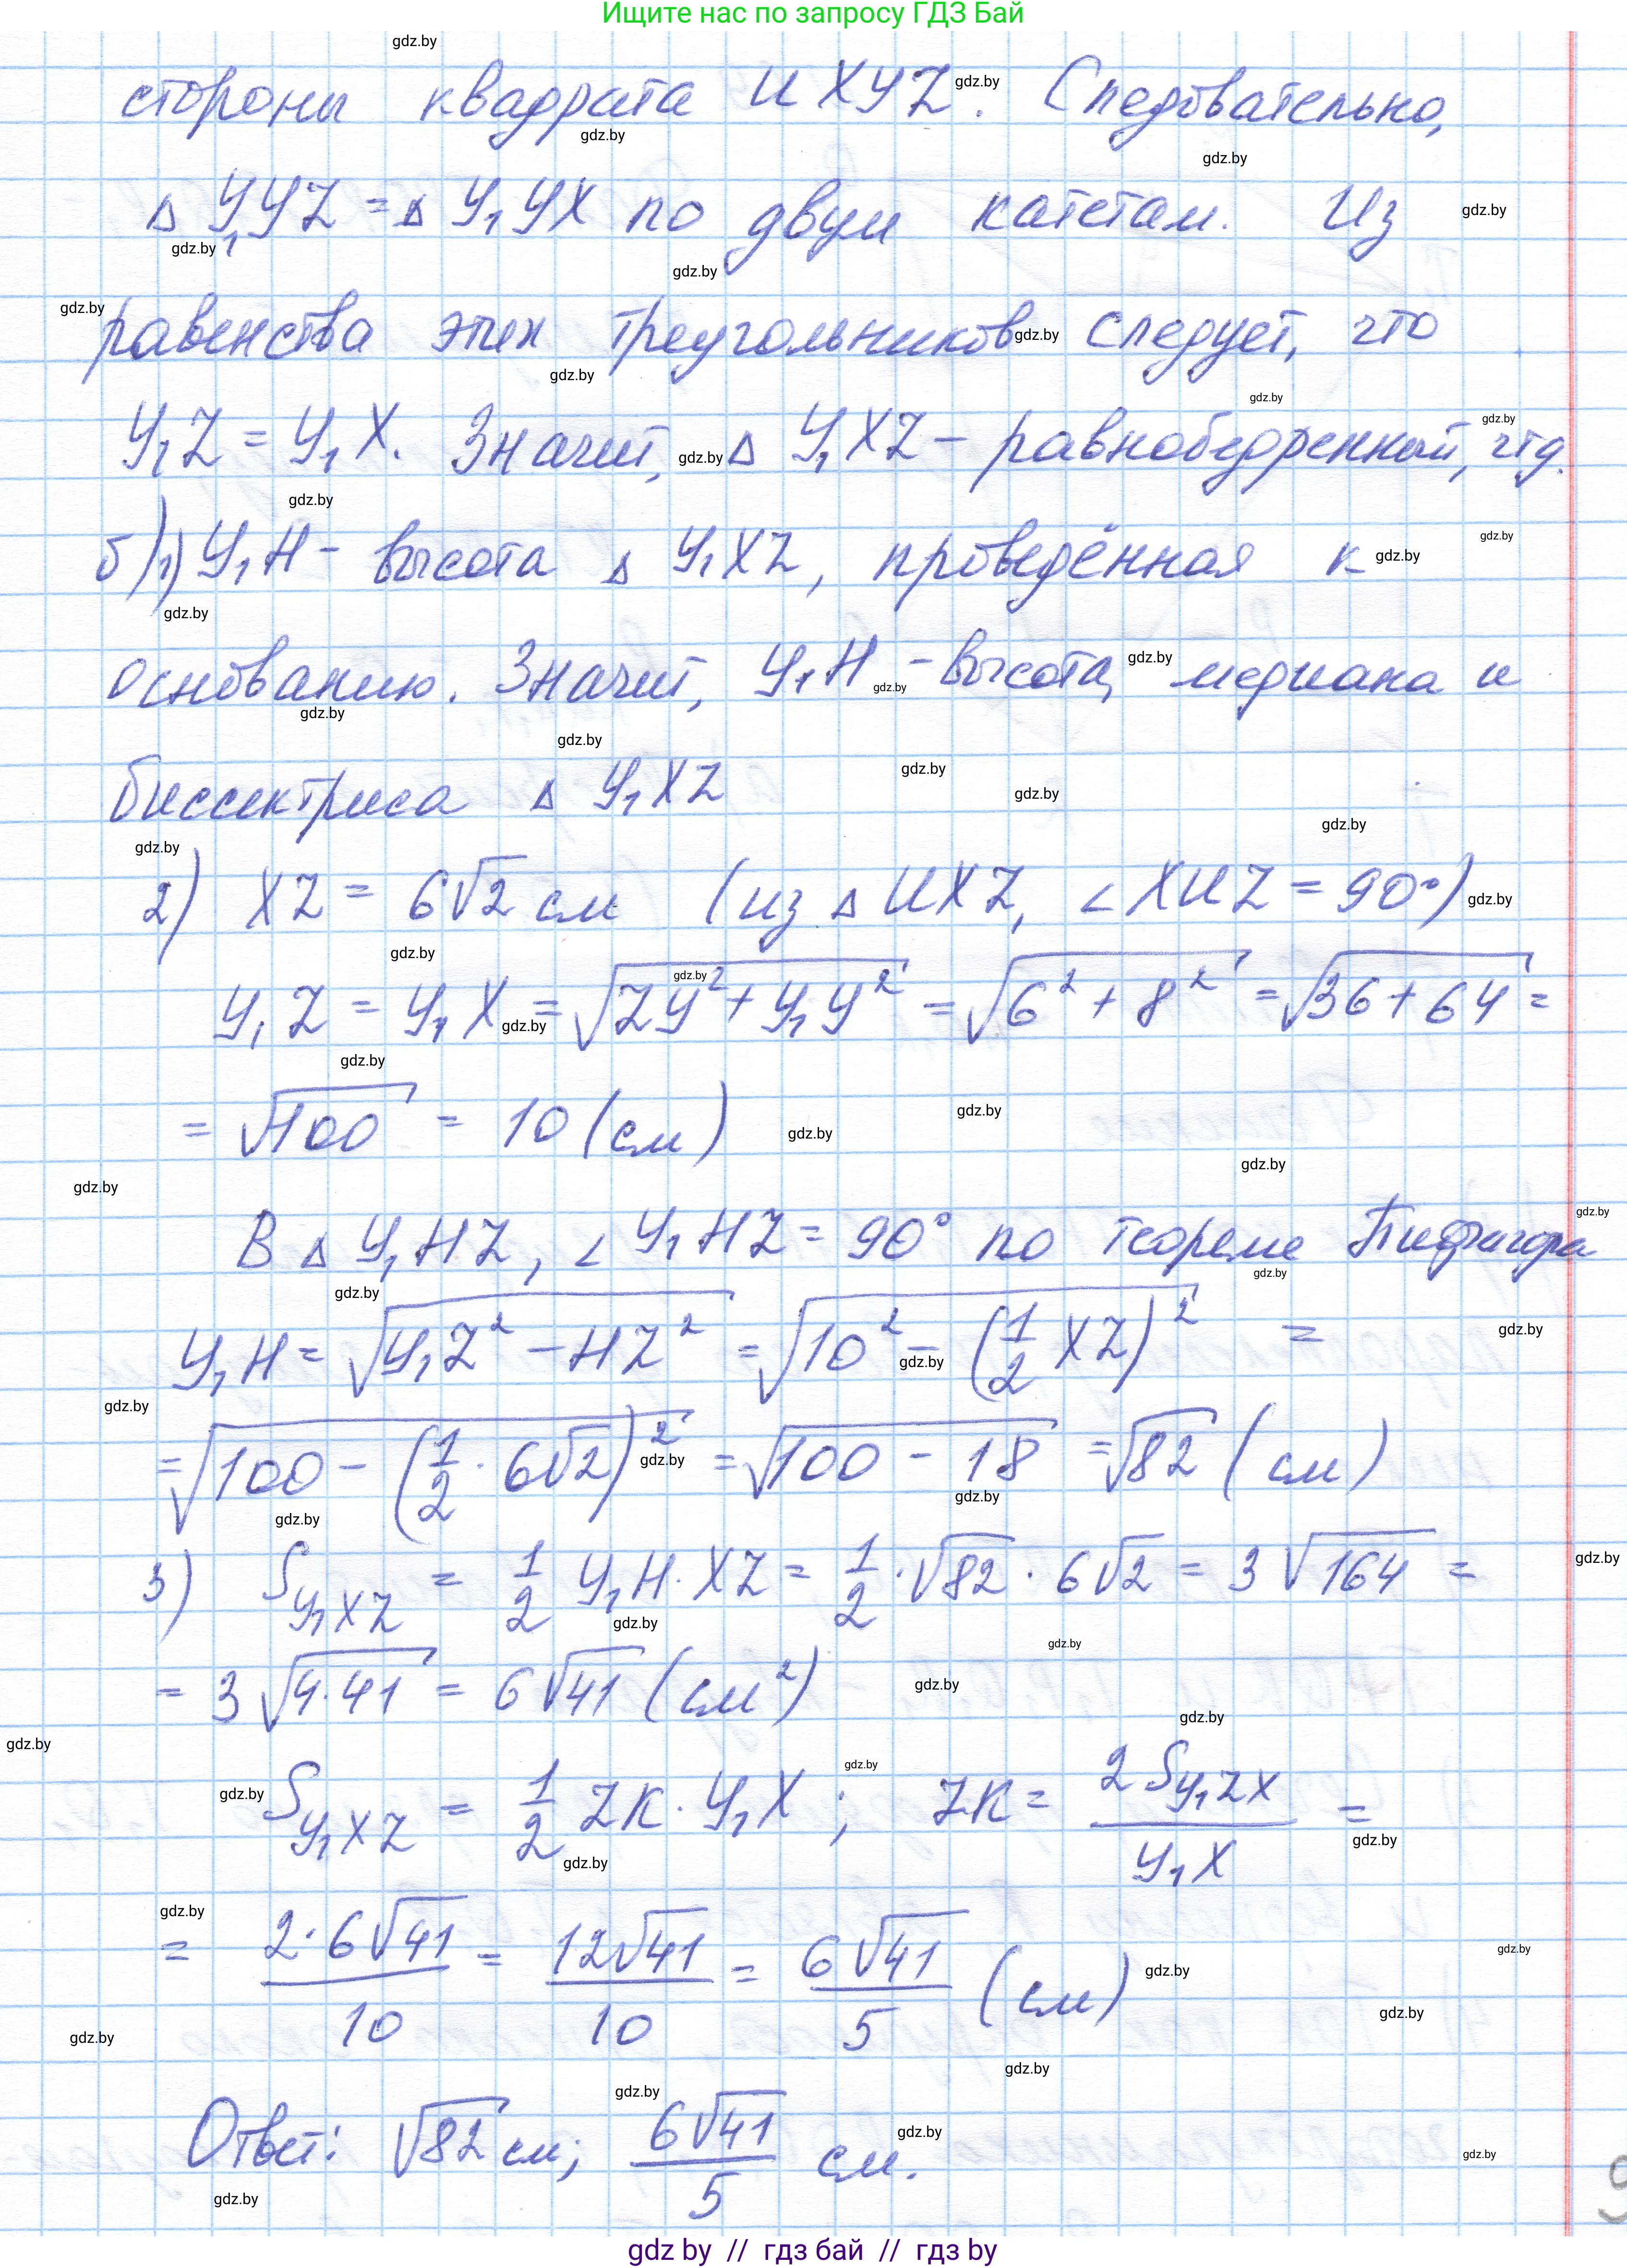 Ищите нас по запросу ГДЗ Бай
стороны квадрата UXYZ. Следовательно,
△ Y₁YZ = △ Y₁YX по двум катетам. Из
равенства этих треугольников следует, что
Y₁Z = Y₁X. Значит, △ Y₁XZ – равнобедренный, чтд.
б) 1) Y₁H – высота △ Y₁XZ, проведённая к
основанию. Значит, Y₁H – высота, медиана и
биссектриса △ Y₁XZ
2) XZ = 6√2 см (из △ UXZ, ∠XUZ = 90°)
Y₁Z = Y₁X = √(ZY² + Y₁Y²) = √(6² + 8²) = √(36 + 64) =
= √100 = 10 (см)
В △ Y₁HZ, ∠Y₁HZ = 90° по теореме Пифагора
Y₁H = √(Y₁Z² – HZ²) = √(10² – (1/2 XZ)²) =
= √(100 – (1/2 · 6√2)²) = √(100 – 18) = √82 (см)
3) S Y₁XZ = 1/2 Y₁H · XZ = 1/2 · √82 · 6√2 = 3√164 =
= 3√(4·41) = 6√41 (см²)
S Y₁XZ = 1/2 ZK · Y₁X ; ZK = 2S Y₁ZX / Y₁X =
= 2·6√41 / 10 = 12√41 / 10 = 6√41 / 5 (см)
Ответ: √82 см; 6√41 / 5 см.
gdz by // гдз бай // гдз by